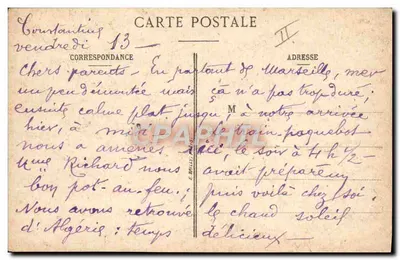 CARTE POSTALE
II
Constantine
vendredi 13 —
CORRESPONDANCE
ADRESSE
chers parents — En partant de Marseille, mer
un peu démontée mais ça n'a pas trop duré ;
ensuite calme plat jusqu'à notre arrivée
M
hier, à midi train paquebot
nous a amenés ici, le soir à 4h 1/2 —
Mme Richard nous avait préparé un
bon pot-au-feu ; puis voilà chez soi.
Nous avons retrouvé le chaud soleil
d'Algérie : temps délicieux —